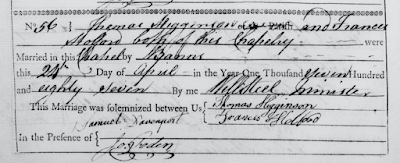 No 56 } Thomas Higginson and Frances
Stofford both of this Chapelry were
Married in this Chapel by Banns
this 24th Day of April in the Year One Thousand seven Hundred
and eighty seven By me Minister
This Marriage was solemnized between Us { Thomas Higginson
Frances
In the Presence of { Samuel Davenport